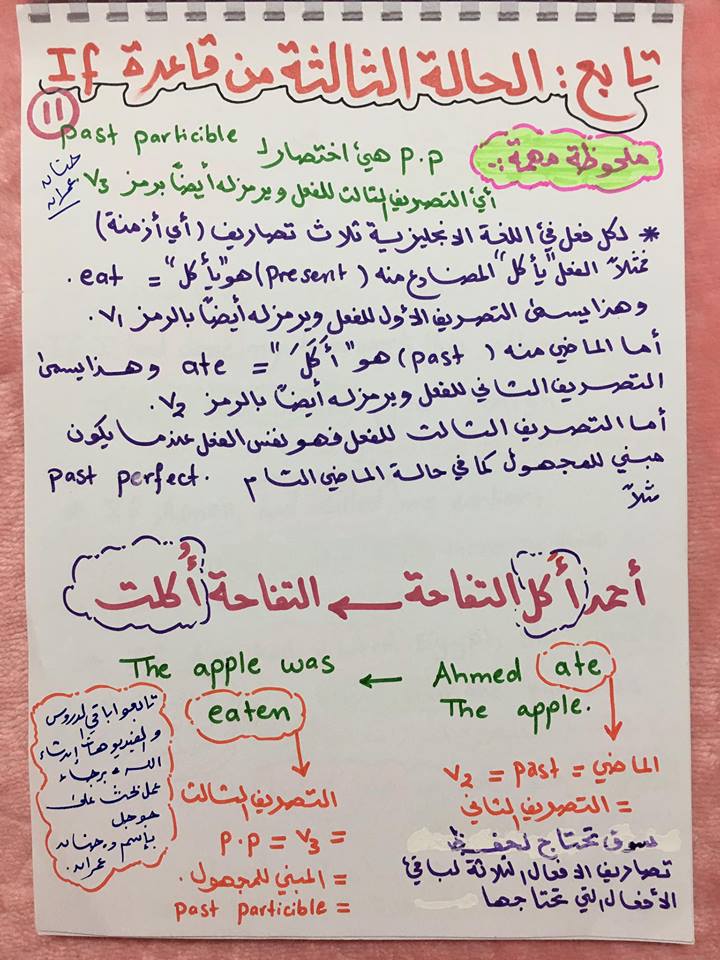 تابع: الحالة الثالثة من قاعدة If
11
ملحوظة مهمة:
p.p هي اختصار لـ past particible
أي التصريف الثالث للفعل ويرمز له أيضاً برمز v3
حنان
عمران
* لكل فعل في اللغة الانجليزية ثلاث تصاريف (أي أزمنة)
فمثلاً الفعل "يأكل" المضارع منه (present) هو "يأكل" = eat.
وهذا يسمى التصريف الأول للفعل ويرمز له أيضاً بالرمز v1.
أما الماضي منه (past) هو "أَكَلَ" = ate وهذا يسمى
التصريف الثاني للفعل ويرمز له أيضاً بالرمز v2.
أما التصريف الثالث للفعل فهو نفس الفعل عندما يكون
مبني للمجهول كما في حالة الماضي التام past perfect.
مثلاً
أحمد أكل التفاحة ← التفاحة أُكلت
Ahmed ate ← The apple was
The apple. eaten
الماضي = v2 = past
= التصريف الثاني
سوف تحتاج لحفظ
تصاريف الافعال الثلاثة لباقي
الأفعال التي تحتاجها
التصريف الثالث
= p.p = v3
= المبني للمجهول.
= past particible
تابعوا باقي الدروس
والفيديوهات إن شاء
الله، برجاء
عمل بحث على
جوجل
بإسم د. حنان
عمران.